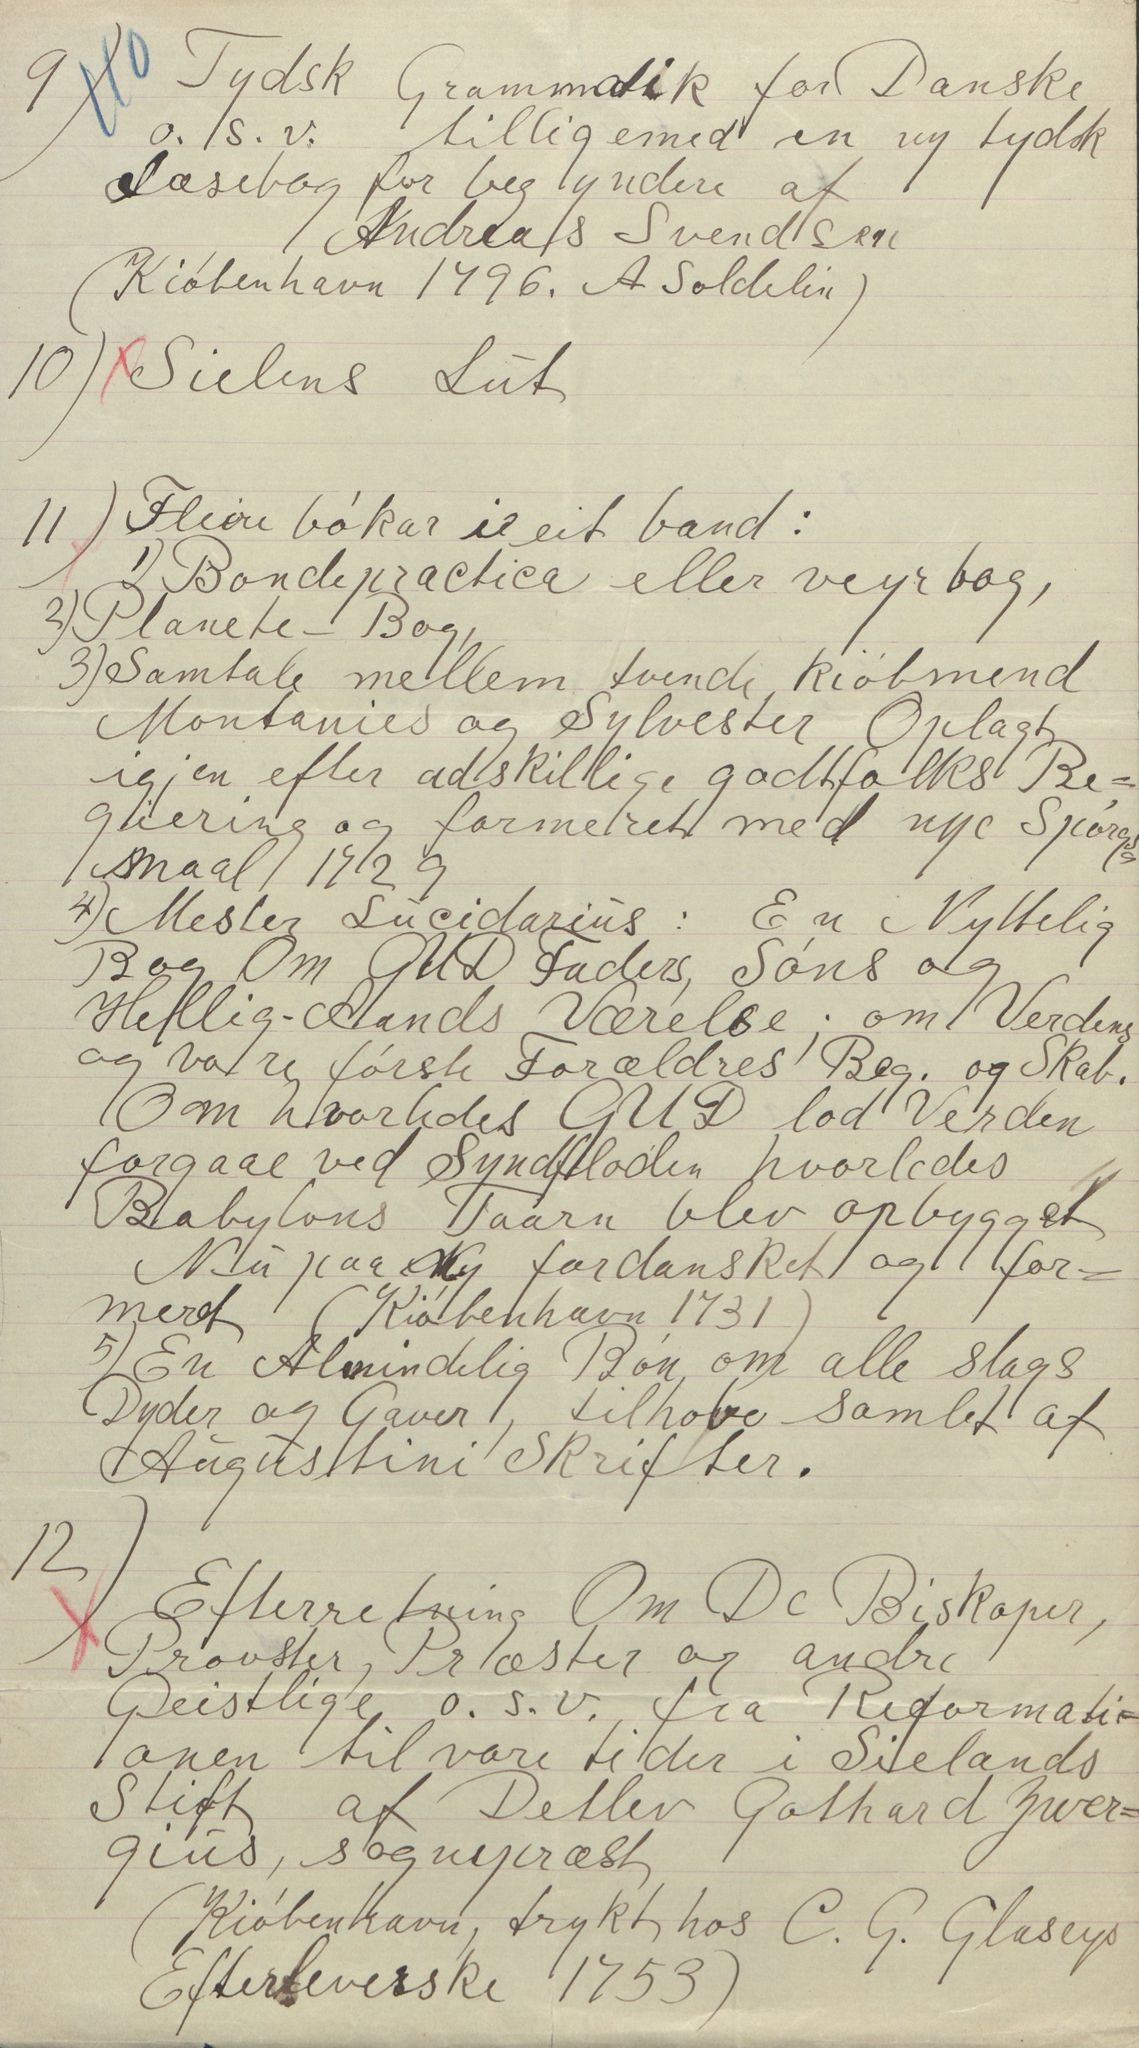 9) 110 Tydsk Grammatik for Danske
o. s. v. tilligemed en ny tydsk
Læsebog for begyndere af
Andreas Svendsen
(Kióbenhavn 1796. A Soldelin)
10) Sielens Lut
11) Fleire bókar i eit band:
1) Bondepractica eller veyrbog,
2) Planete-Bog,
3) Samtale mellem tvende kióbmend
Montanies og Sylvester Oplagt
igjen efter adskillige godtfolks Be=
giæring og formeret med nye Spórgs=
maal 1729
4) Mester Lucidarius: En Nyttelig
Bog Om GUD Faders, Sóns og
Hellig-Aands Værelse; om Verdens
og vare fórste Forældres Beg. og Skab.
Om hvorledes GUD lod Verden
forgaae ved Syndfloden hvorledes
Babylons Taarn blev opbygget
Nu paa Ny fordansket og for=
meret (Kióbenhavn 1731)
5) En Almindelig Bón om alle slags
Dyder og Gaver, tilhobe samlet af
Augustini Skrifter.
12)
Efterretning Om De Biskoper,
Provster, Præster og andre
Geistlige o. s. v. fra Reformati=
onen til vare tider i Sielands
Stift af Detlev Gothard Zwer=
gius, sognepræst
(Kióbenhavn, trykt hos C. G. Glaseys
Efterleverske 1753)